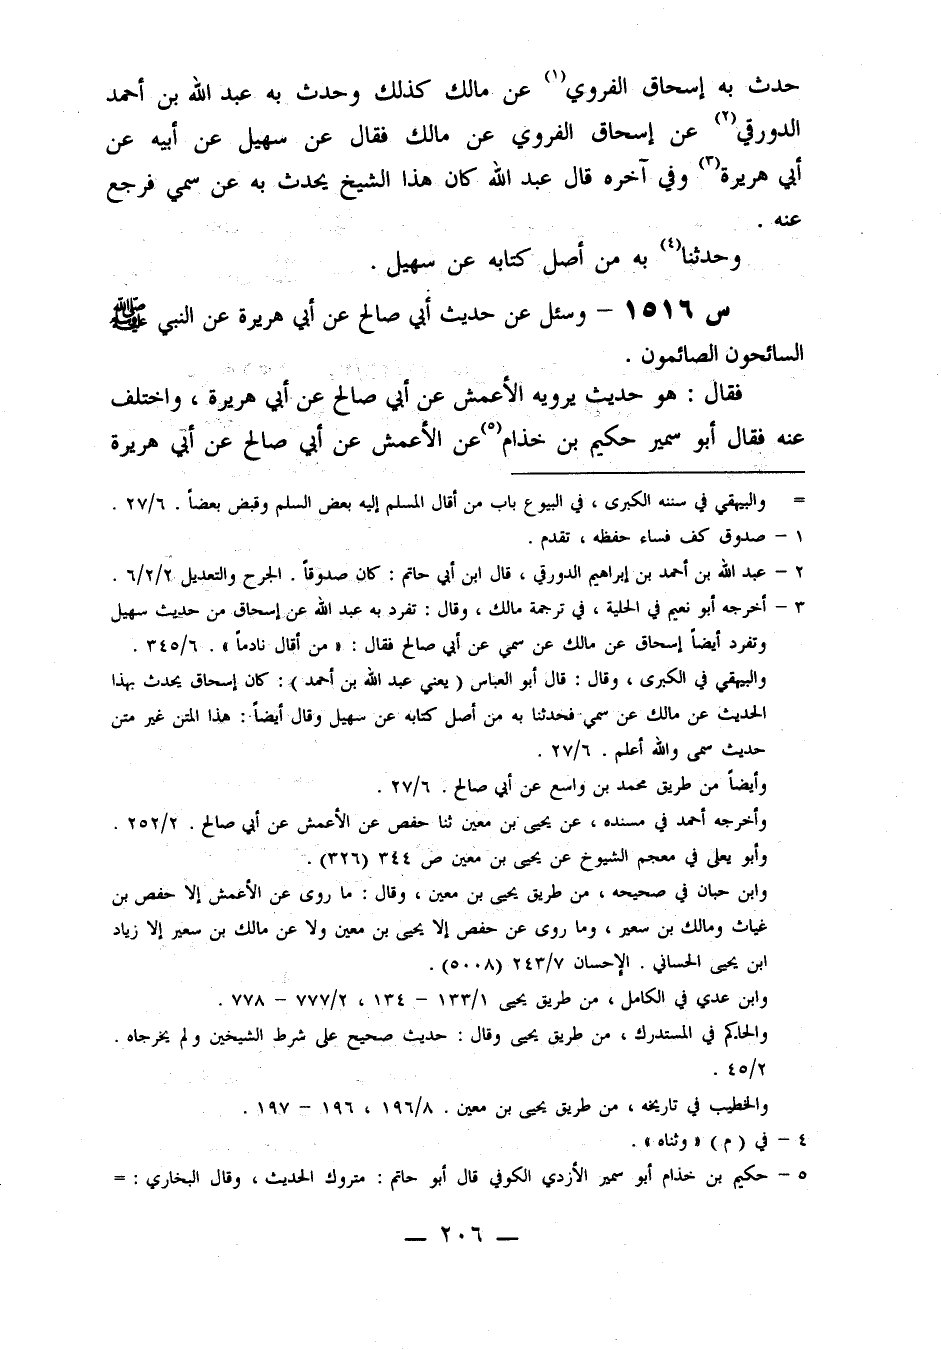 حدث به إسحاق الفروي(١) عن مالك كذلك وحدث به عبد الله بن أحمد
الدورقي(٢) عن إسحاق الفروي عن مالك فقال عن سهيل عن أبيه عن
أبي هريرة(٣) وفي آخره قال عبد الله كان هذا الشيخ يحدث به عن سمي فرجع
عنه .
وحدثنا(٤) به من أصل كتابه عن سهيل .
س ١٥١٦ – وسئل عن حديث أبي صالح عن أبي هريرة عن النبي ﷺ
السائحون الصائمون .
فقال : هو حديث يرويه الأعمش عن أبي صالح عن أبي هريرة ، واختلف
عنه فقال أبو سمير حكيم بن خذام(٥) عن الأعمش عن أبي صالح عن أبي هريرة
= والبيهقي في سننه الكبرى ، في البيوع باب من أقال المسلم إليه بعض السلم وقبض بعضاً . ٢٧/٦ .
١ – صدوق كف فساء حفظه ، تقدم .
٢ – عبد الله بن أحمد بن إبراهيم الدورقي ، قال ابن أبي حاتم : كان صدوقاً . الجرح والتعديل ٦/٢/٢ .
٣ – أخرجه أبو نعيم في الحلية ، في ترجمة مالك ، وقال : تفرد به عبد الله عن إسحاق من حديث سهيل
وتفرد أيضاً إسحاق عن مالك عن سمي عن أبي صالح فقال : « من أقال نادماً » . ٣٤٥/٦ .
والبيهقي في الكبرى ، وقال : قال أبو العباس ( يعني عبد الله بن أحمد ) : كان إسحاق يحدث بهذا
الحديث عن مالك عن سمي فحدثنا به من أصل كتابه عن سهيل وقال أيضاً : هذا المتن غير متن
حديث سمى والله أعلم . ٢٧/٦ .
وأيضاً من طريق محمد بن واسع عن أبي صالح . ٢٧/٦ .
وأخرجه أحمد في مسنده ، عن يحيى بن معين ثنا حفص عن الأعمش عن أبي صالح . ٢٥٢/٢ .
وأبو يعلى في معجم الشيوخ عن يحيى بن معين ص ٣٤٤ (٣٢٦) .
وابن حبان في صحيحه ، من طريق يحيى بن معين ، وقال : ما روى عن الأعمش إلا حفص بن
غياث ومالك بن سعير ، وما روى عن حفص إلا يحيى بن معين ولا عن مالك بن سعير إلا زياد
ابن يحيى الحساني . الإحسان ٢٤٣/٧ (٥٠٠٨) .
وابن عدي في الكامل ، من طريق يحيى ١٣٣/١ – ١٣٤ ، ٧٧٧/٢ – ٧٧٨ .
والحاكم في المستدرك ، من طريق يحيى وقال : حديث صحيح على شرط الشيخين ولم يخرجاه .
٤٥/٢ .
والخطيب في تاريخه ، من طريق يحيى بن معين . ١٩٦/٨ ، ١٩٦ – ١٩٧ .
٤ – في ( م ) « وثناه » .
٥ – حكيم بن خذام أبو سمير الأزدي الكوفي قال أبو حاتم : متروك الحديث ، وقال البخاري : =
— ٢٠٦ —